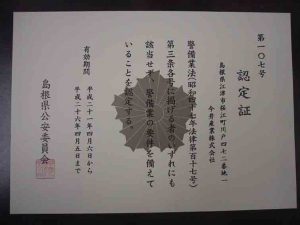 第一〇七号
認定証
島根県江津市桜江町川戸四七二番地一
今井産業株式会社
警備業法(昭和四十七年法律第百十七号)
第三条各号に掲げる者のいずれにも
該当せず、警備業の要件を備えて
いることを認定する。
有効期間
平成二十一年四月六日から
平成二十六年四月五日まで
島根県公安委員会